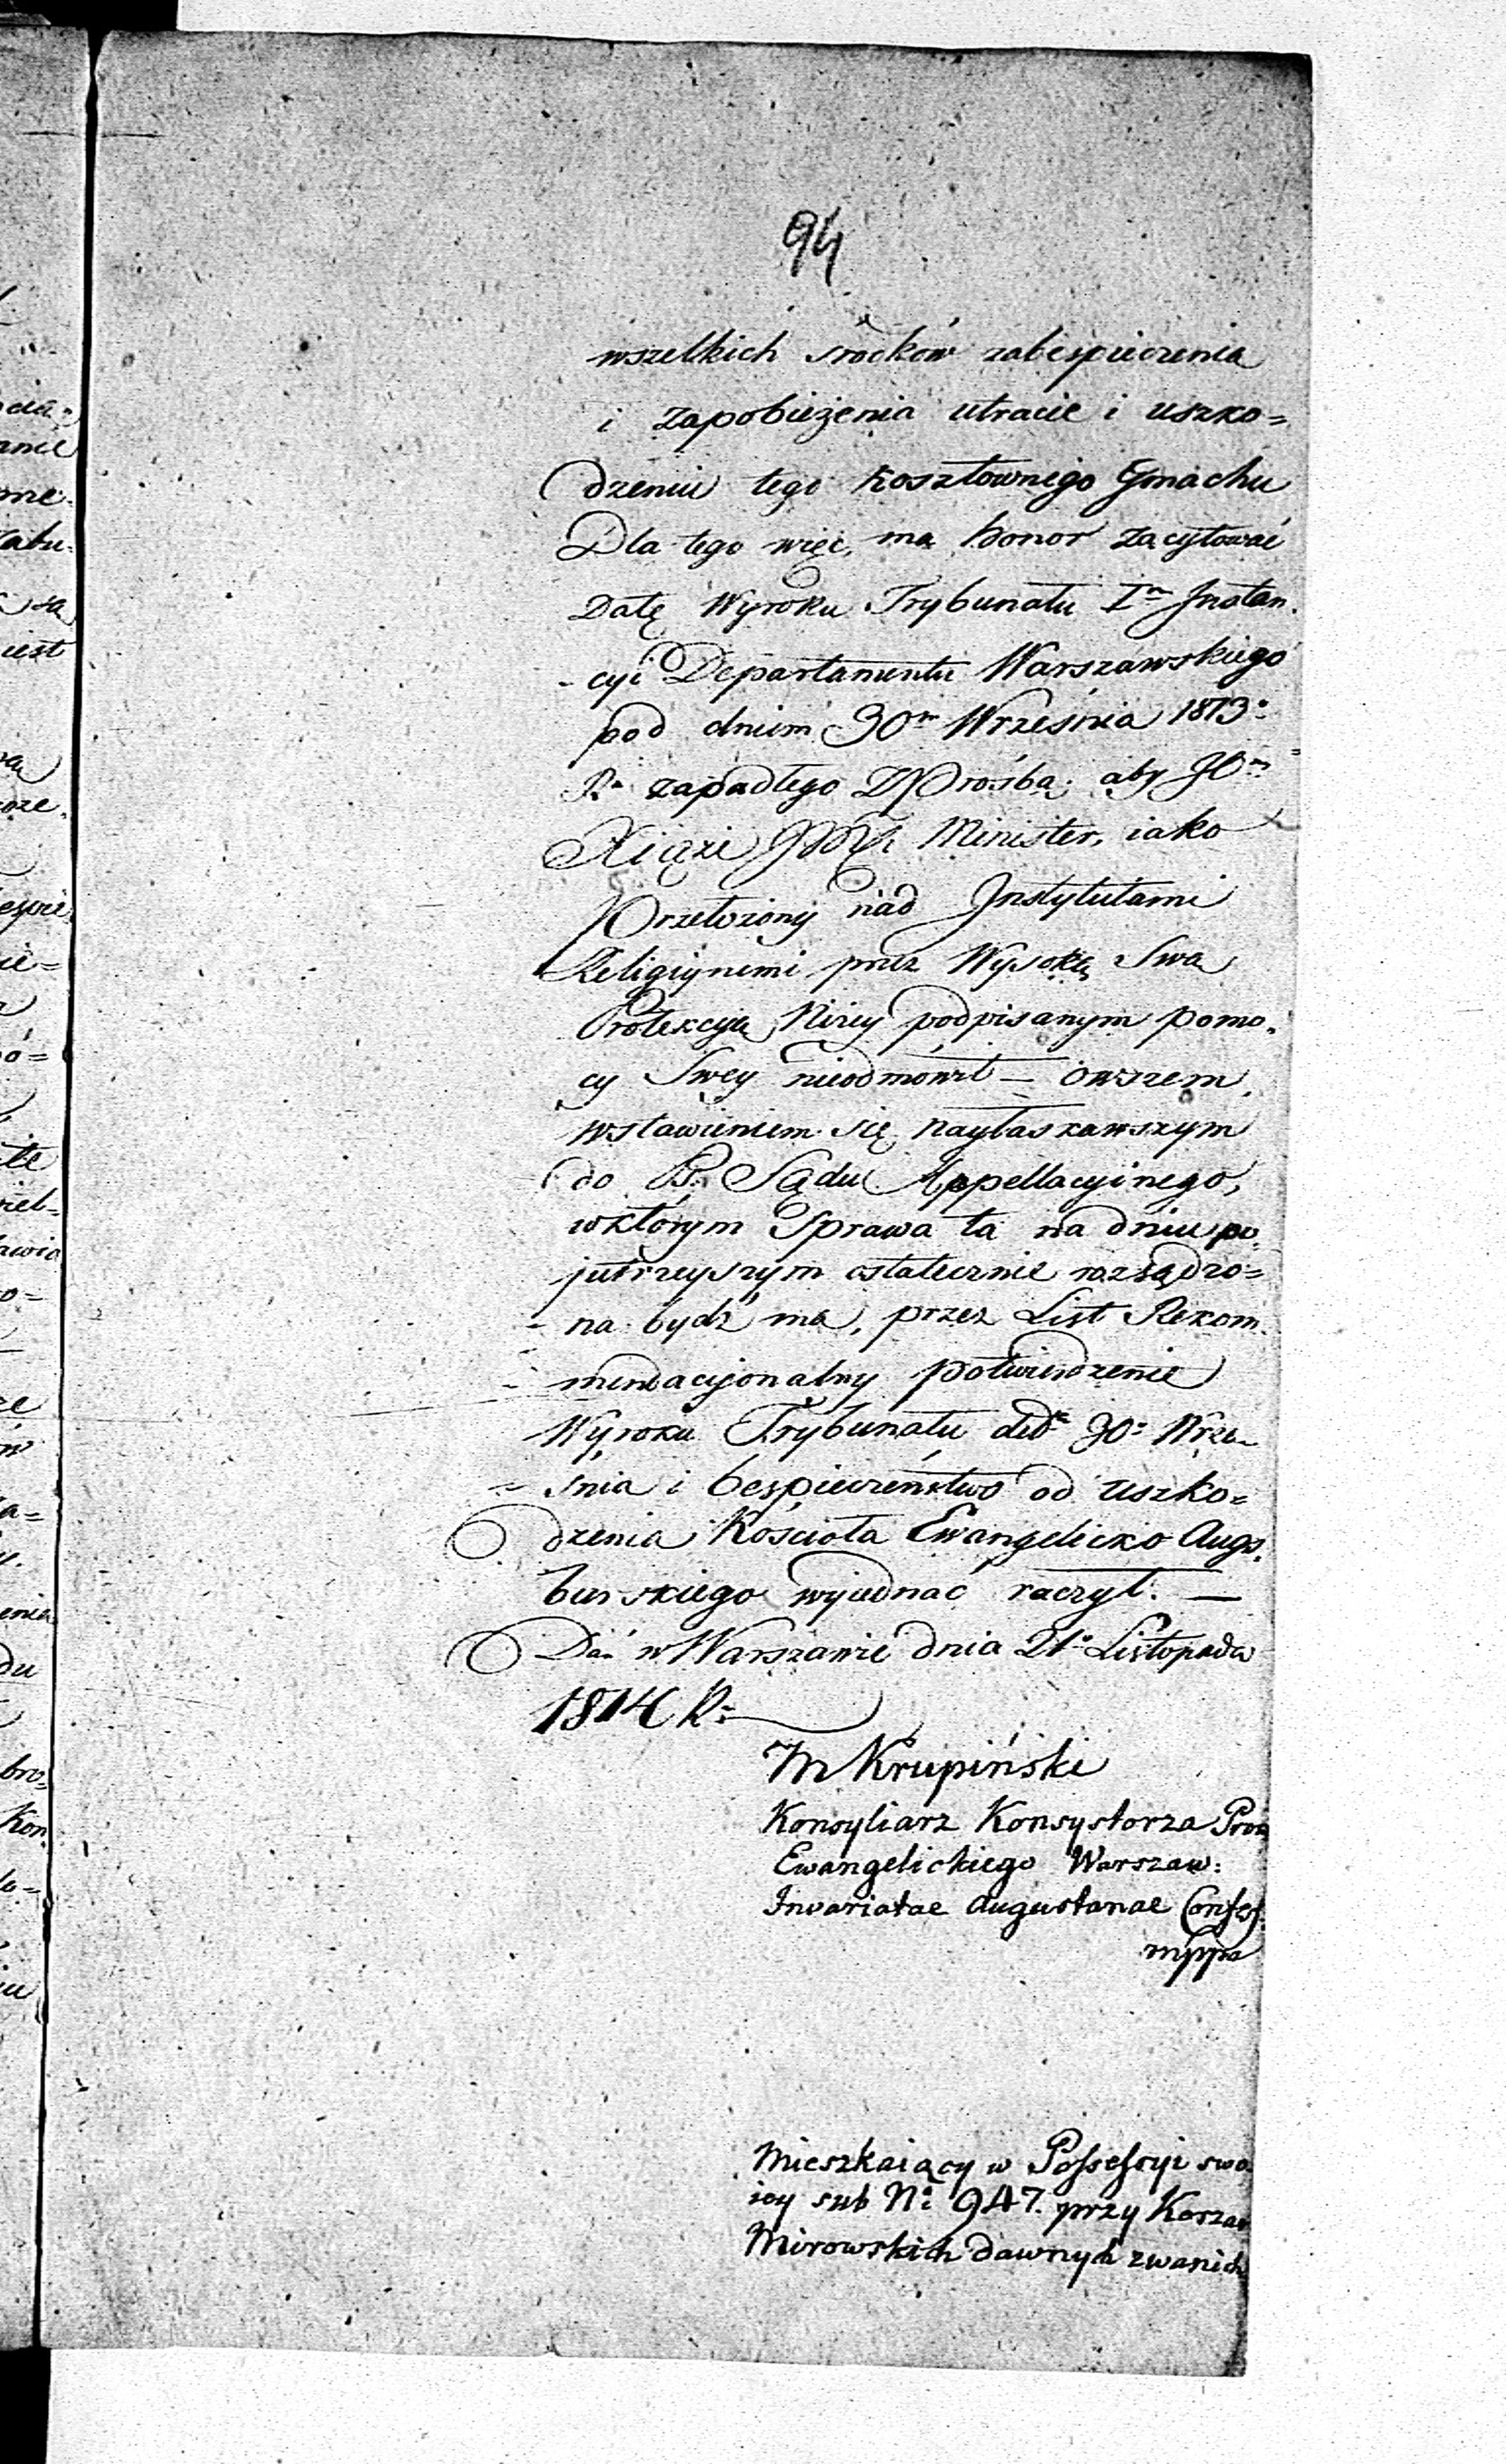 94
wszelkich srodków zabespieczenia
i zapobieżenia utracie i uszko=
dzeniu tego kosztownego Gmachu
Dla tego więc, ma honor zacytować
Datę Wyroku Trybunału I<sup>n</sup> Instan.
- cyi Departamentu Warszawskiego
pod dniem 30<sup>m</sup> Września 1813º
R<sup>u</sup> zapadłego z Prośbą, aby JO<sup>n</sup>
Xiąże JMć Minister, iako
Przełożony nad Instytutami
Religiynemi przez Wysoką Swą
Protekcyą Niżey podpisanym pomo.
cy Swey nieodmówił — owszem,
wstawieniem się nayłaskawszym
do P. Sądu Appellacyinego,
w którym Sprawa ta na dniu po,
jutrzeyszym ostatecznie rozsądzo=
- na bydź ma, przez List Rekom.
- mendacyjonalny potwierdzenie
Wyroku Trybunału ded 30º Wrze-
- śnia i bespieczeństwo od uszko=
dzenia Kościoła Ewangelicko Augs.
burskiego wyiednać raczył. —
Dan w Warszawie dnia 21º Listopada
1814 R:
M Krupiński
Konsyliarz Konsystorza Prow
Ewangelickiego Warszaw:
Invariatae Augustanae Confess.
mppa
Mieszkaiący w Possessyi swo
iey sub Nº 947. przy Koszar
Mirowskich dawnych zwanich